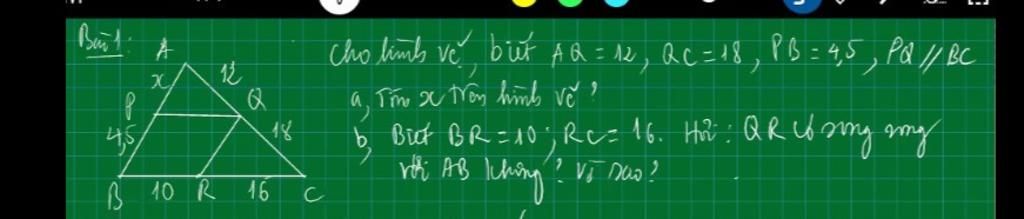 Bài 1:
Cho hình vẽ, biết AQ = 12, QC = 18, PB = 4,5, PQ // BC
a, Tìm x trên hình vẽ?
b, Biết BR = 10; RC = 16. Hỏi: QR có song song
với AB không? Vì sao?
A
x 12
P Q
4,5 18
B 10 R 16 C